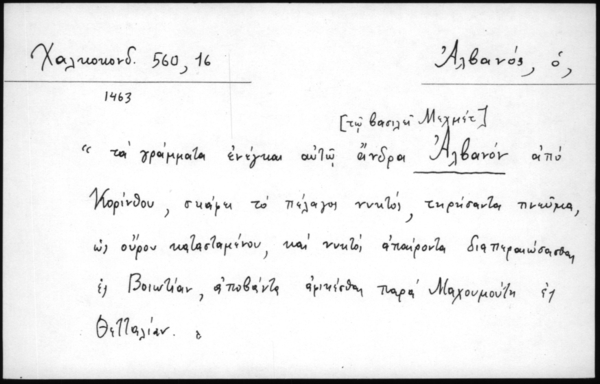 Χαλκοκονδ. 560, 16
Ἀλβανός, ὁ,
1463
[τῷ βασιλεῖ Μεχμέτ]
“ τὰ γράμματα ἐνέγκαι αὐτῷ ἄνδρα Ἀλβανόν ἀπό
Κορίνθου, σκάφει τὸ πέλαγος νυκτός, τηρήσαντα πνεῦμα,
ὡς οὖρον κατασταμένου, καὶ νυκτός ἀπαίροντα διαπεραιώσασθαι
ἐς Βοιωτίαν, ἀποβάντα ἀφικέσθαι παρά Μαχουμούτῃ ἐς
Θετταλίαν.